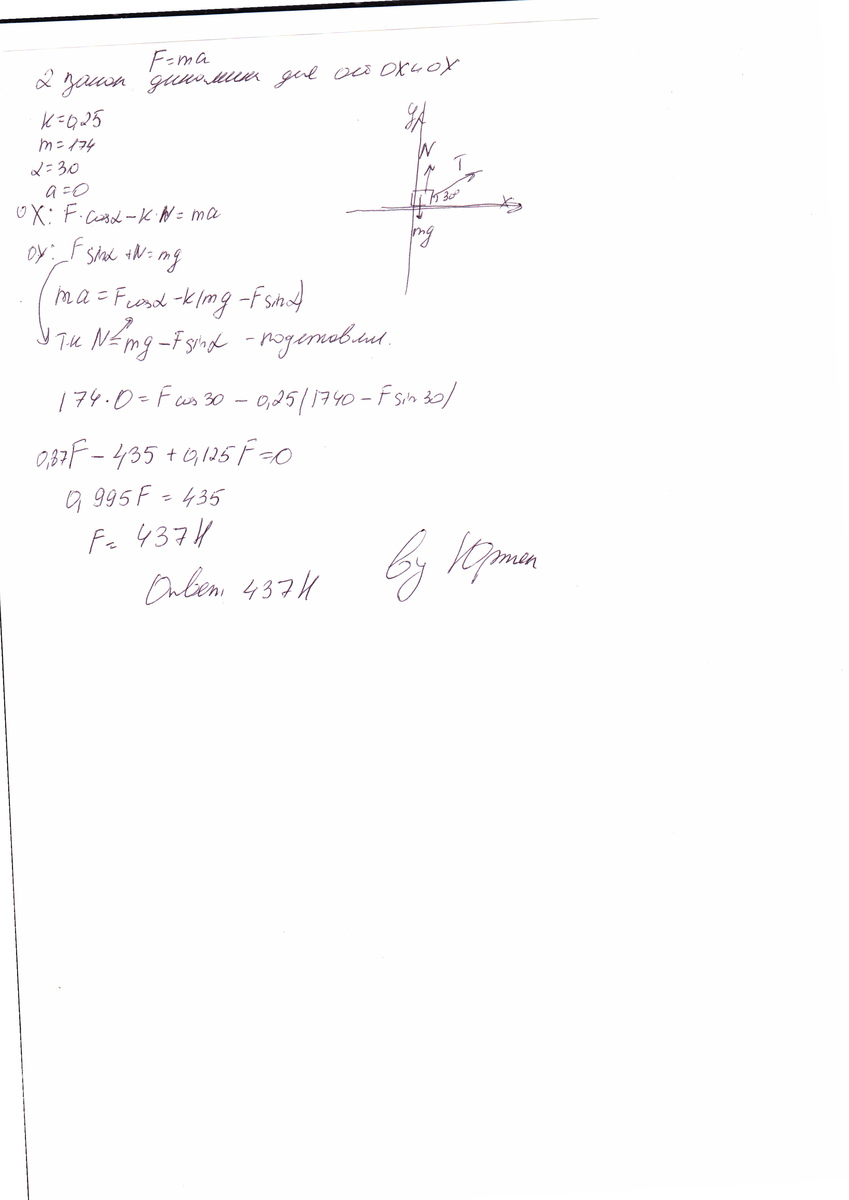 F=ma
2 закон динамики для оси OX и OX
K=0,25
m=174
α=30
a=0
OX: F·cosα-K·N=ma
OY: F sinα+N=mg
ma=Fcosα-K(mg-Fsinα)
т.к N=mg-Fsinα - подставим.
174·0=Fcos30-0,25(1740-Fsin30)
0,87F-435+0,125F=0
0,995F=435
F=437Н
Ответ: 437Н
by
y
N
T
30°
x
mg